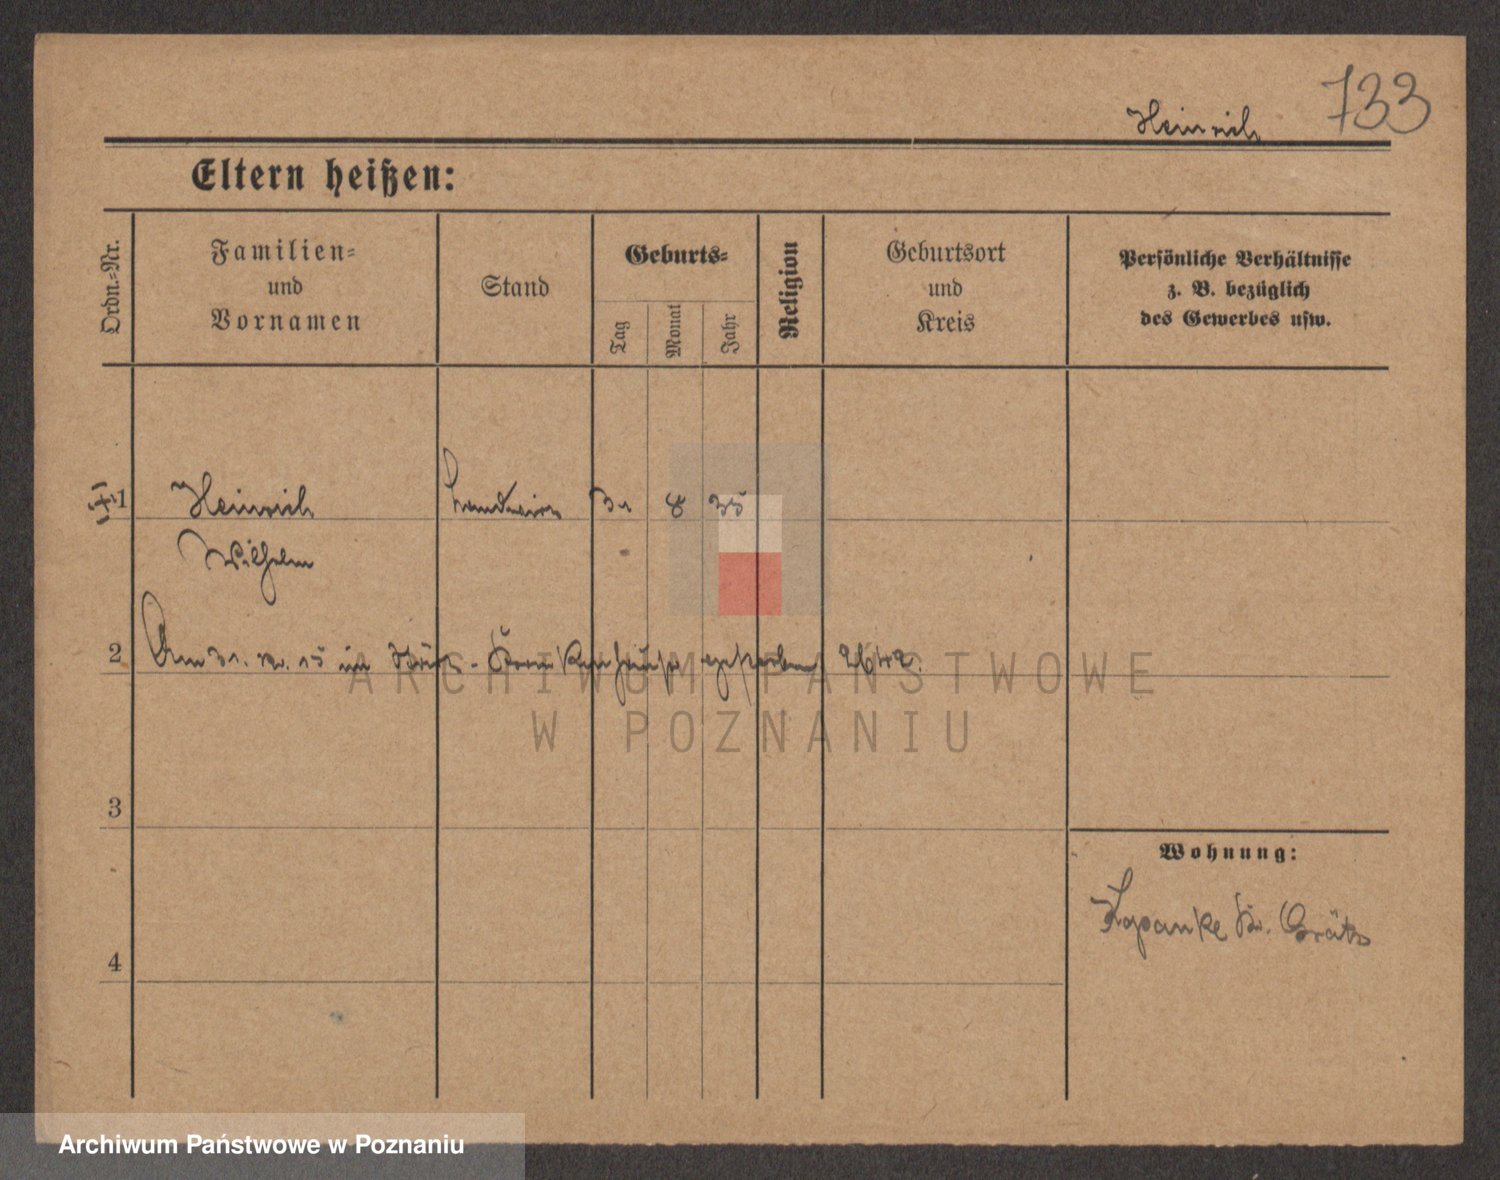 Heinrich 733
Eltern heißen:
Ordn.=Nr.
Familien=
und
Vornamen
Stand
Geburts=
Tag
Monat
Jahr
Religion
Geburtsort
und
Kreis
Persönliche Verhältnisse
z. B. bezüglich
des Gewerbes usw.
1 Heinrich Landwirt 31 8 35
Wilhelm
2 Am 31. 12. 15 im Krankenhause gestorben
3
Wohnung:
Kr. Grätz
4
ARCHIWUM PAŃSTWOWE
W POZNANIU
Archiwum Państwowe w Poznaniu